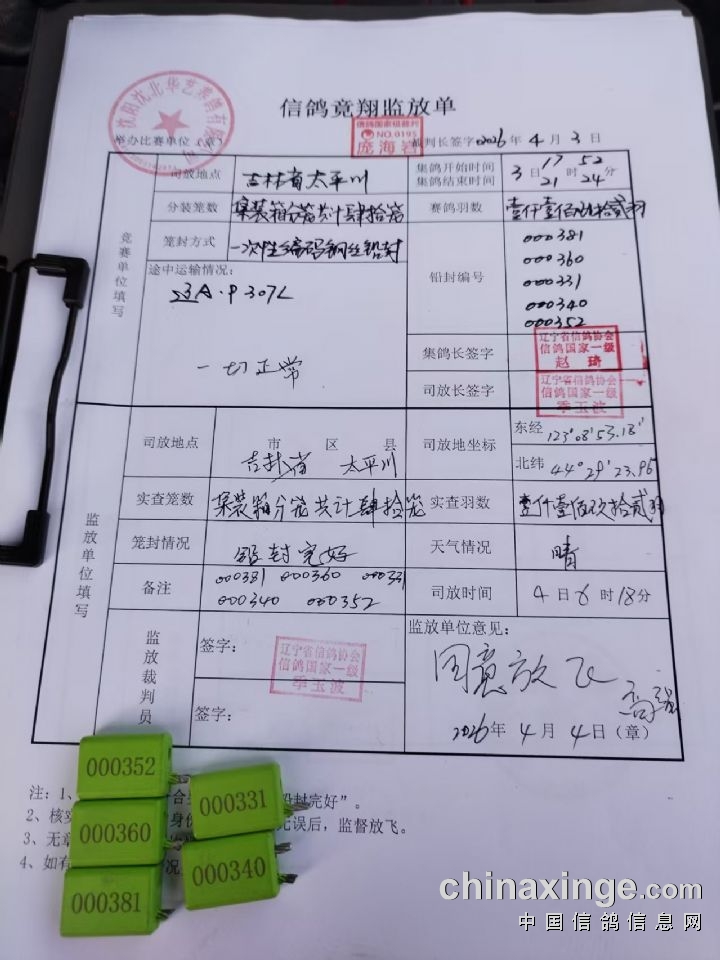 信鸽竞翔监放单
举办比赛单位（章）
裁判长签字 2026年 4月 3日
信鸽国家级裁判
NO.0195
庞海岩
竞赛单位填写
司放地点 吉林省太平川
集鸽开始时间
集鸽结束时间
3日 17时52分
21 24
分装笼数 集装箱分笼共计肆拾笼
赛鸽羽数 壹仟壹佰玖拾贰羽
笼封方式 一次性编码钢丝铅封
铅封编号
000381
000360
000331
000340
000352
途中运输情况：
辽A·P307L
一切正常
集鸽长签字
辽宁省信鸽协会
信鸽国家一级
赵琦
司放长签字
辽宁省信鸽协会
信鸽国家一级
季玉波
监放单位填写
司放地点 市 区 县
吉林省 太平川
司放地坐标
东经 123°08′53.18″
北纬 44°29′23.96″
实查笼数 集装箱分笼共计肆拾笼
实查羽数 壹仟壹佰玖拾贰羽
笼封情况 铅封完好
天气情况 晴
备注 000381 000360 000331
000340 000352
司放时间 4日6时18分
监放裁判员
签字：
辽宁省信鸽协会
信鸽国家一级
季玉波
签字：
监放单位意见：
同意放飞
2026年 4月 4日（章）
注：1、
铅封完好”。
2、核实
无误后，监督放飞。
3、无章
4、如有
000352
000331
000360
000340
000381
chinaxinge.com
中国信鸽信息网